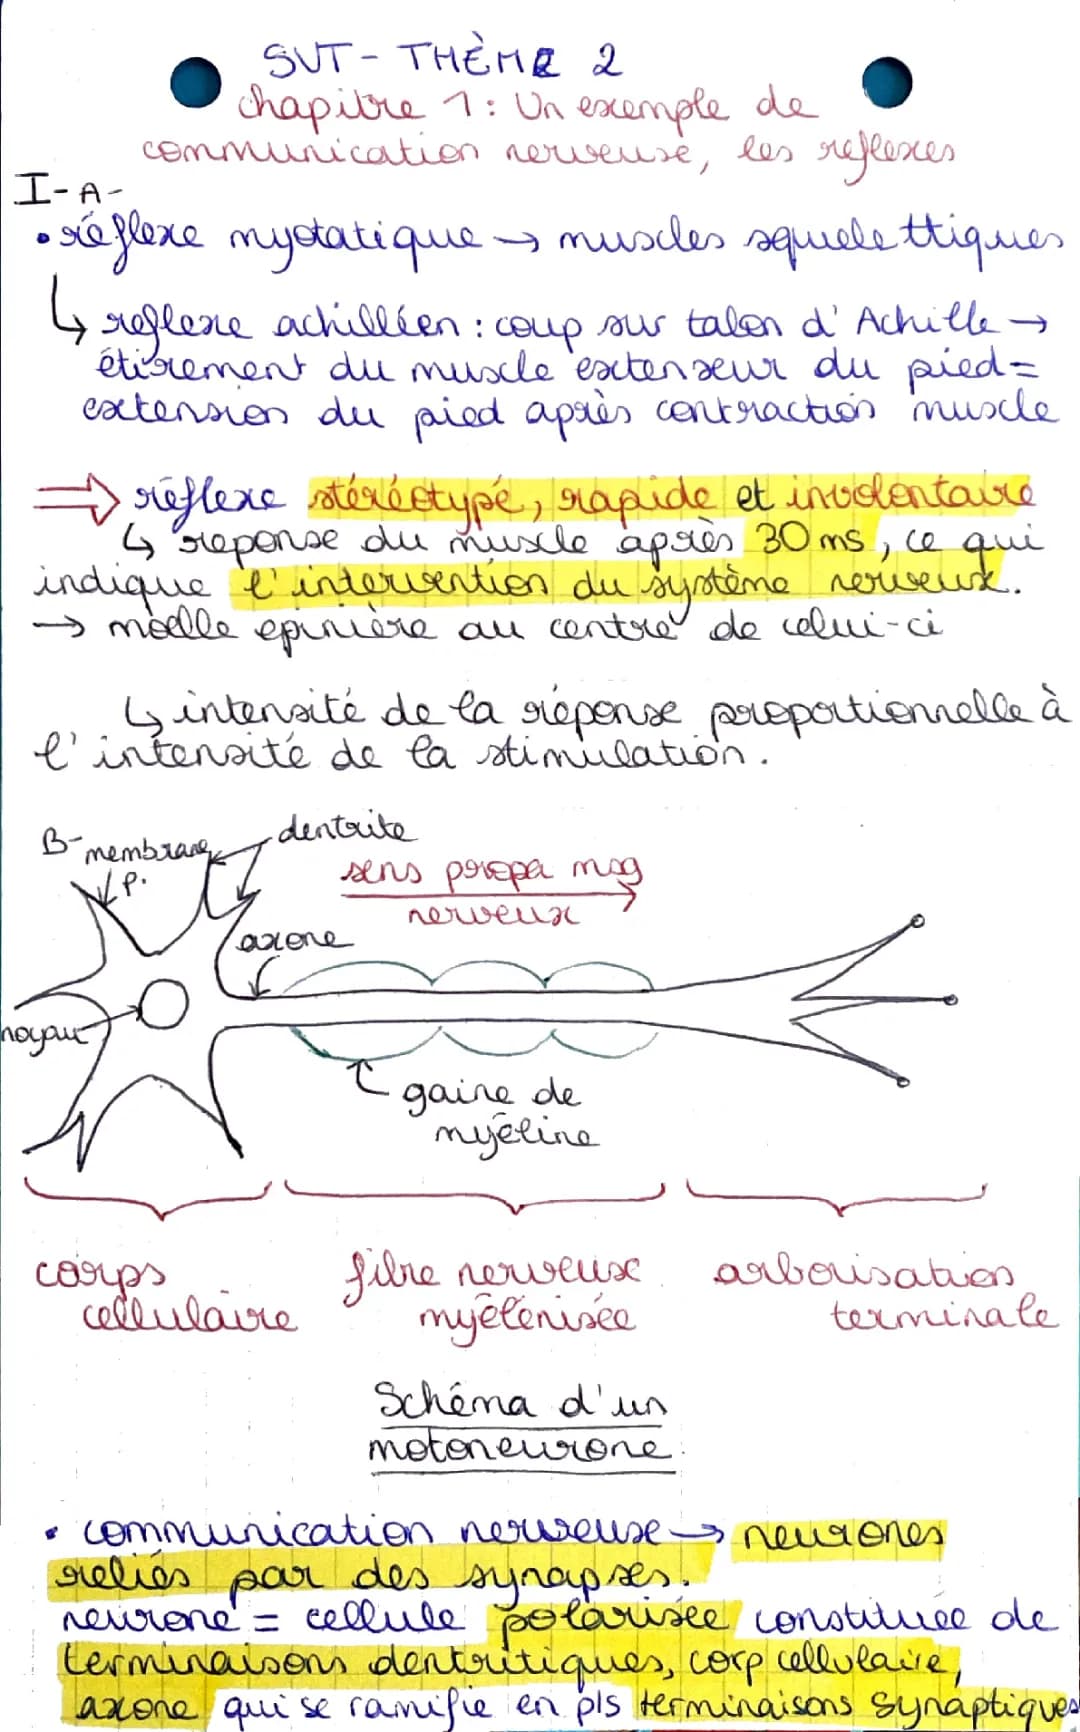 SVT - THÈME 2
chapitre 1: Un exemple de
communication nerveuse, les reflexes
I- A-
• réflexe myotatique → muscles squelettiques
↳ reflexe achilléen : coup sur talon d'Achille →
étirement du muscle extenseur du pied =
extension du pied après contraction muscle
⇒ réflexe stéréotypé, rapide et involontaire
↳ reponse du muscle après 30 ms, ce qui
indique l'intervention du système nerveux.
→ moelle epinière au centre de celui-ci
↳ intensité de la réponse proportionnelle à
l'intensité de la stimulation.
B-
membrane
p.
dentrite
sens propa msg
nerveux
axone
noyau
gaine de
myéline
corps
cellulaire
fibre nerveuse
myélénisée
arborisation
terminale
Schéma d'un
motoneurone.
• communication nerveuse → neurones
reliés par des synapses.
neurone = cellule polarisée constituée de
terminaisons dentritiques, corp cellulaire,
axone qui se ramifie en pls terminaisons synaptiques